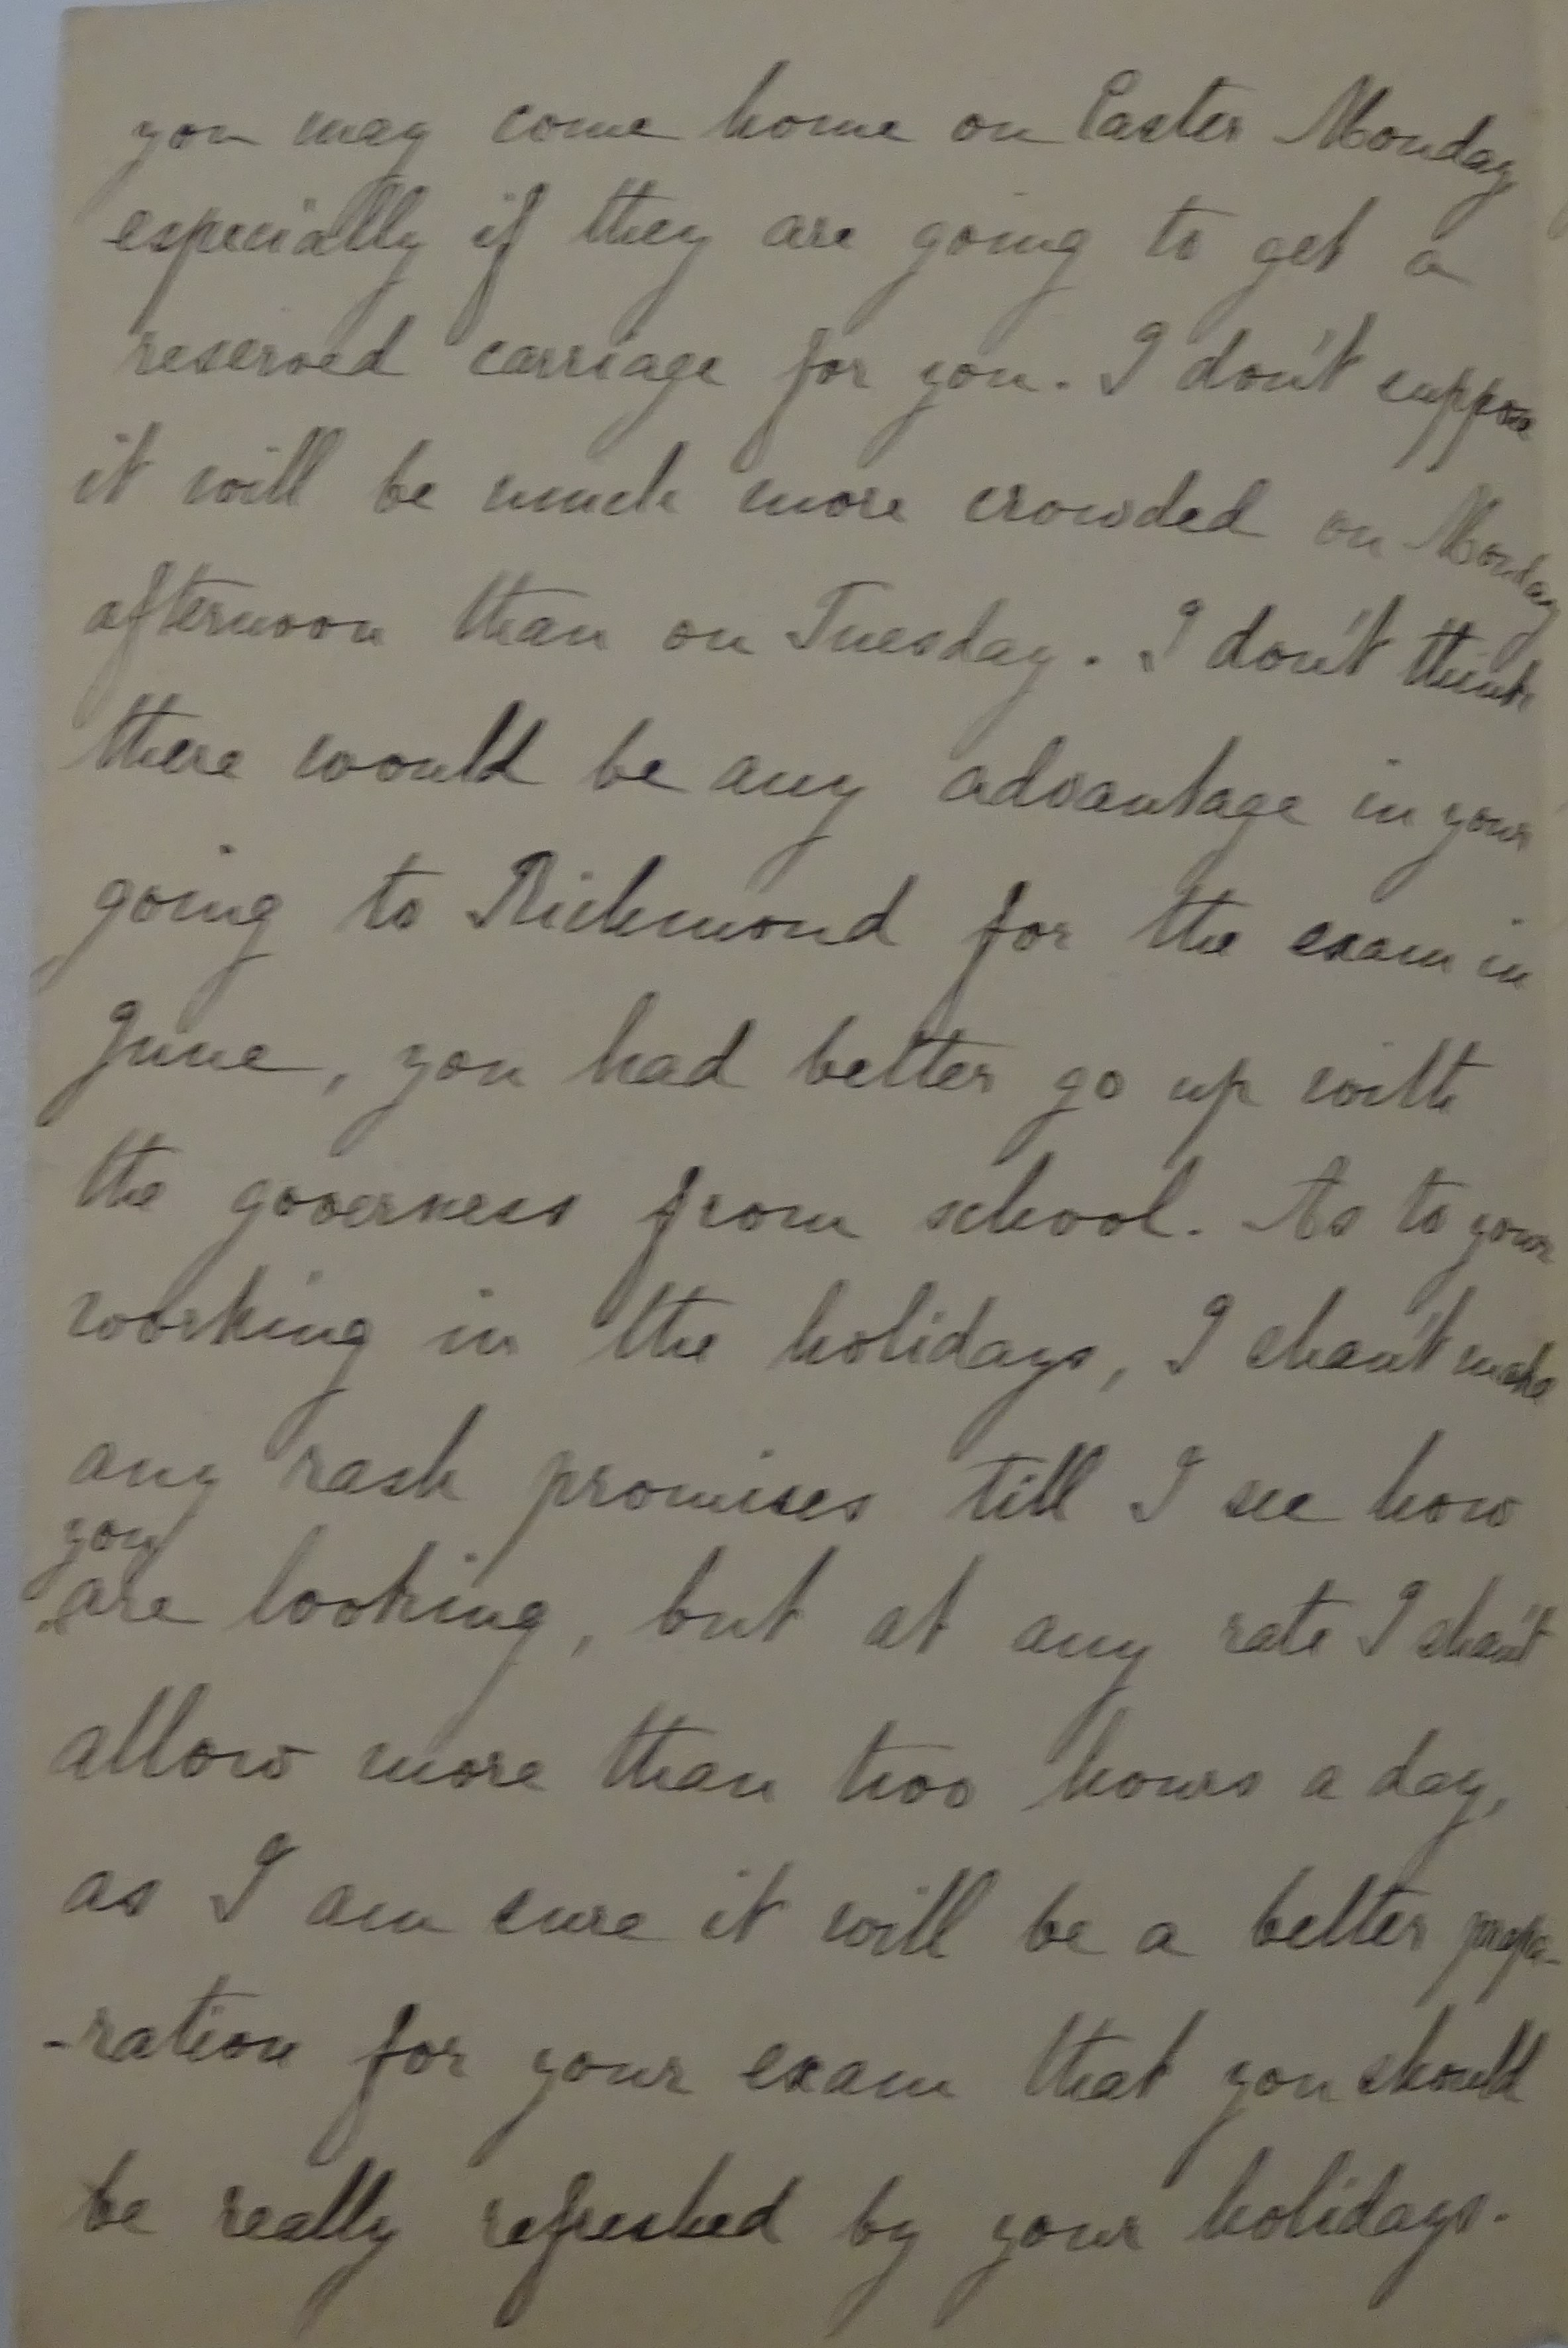 you may come home on Easter Monday
especially if they are going to get a
reserved carriage for you. I don't suppose
it will be much more crowded on Monday
afternoon than on Tuesday. I don't think
there would be any advantage in your
going to Richmond for the exam in
June, you had better go up with
the governess from school. As to your
working in the holidays, I shan't make
any rash promises till I see how
you
are looking, but at any rate I shan't
allow more than two hours a day,
as I am sure it will be a better prepa-
-ration for your exam that you should
be really refreshed by your holidays.